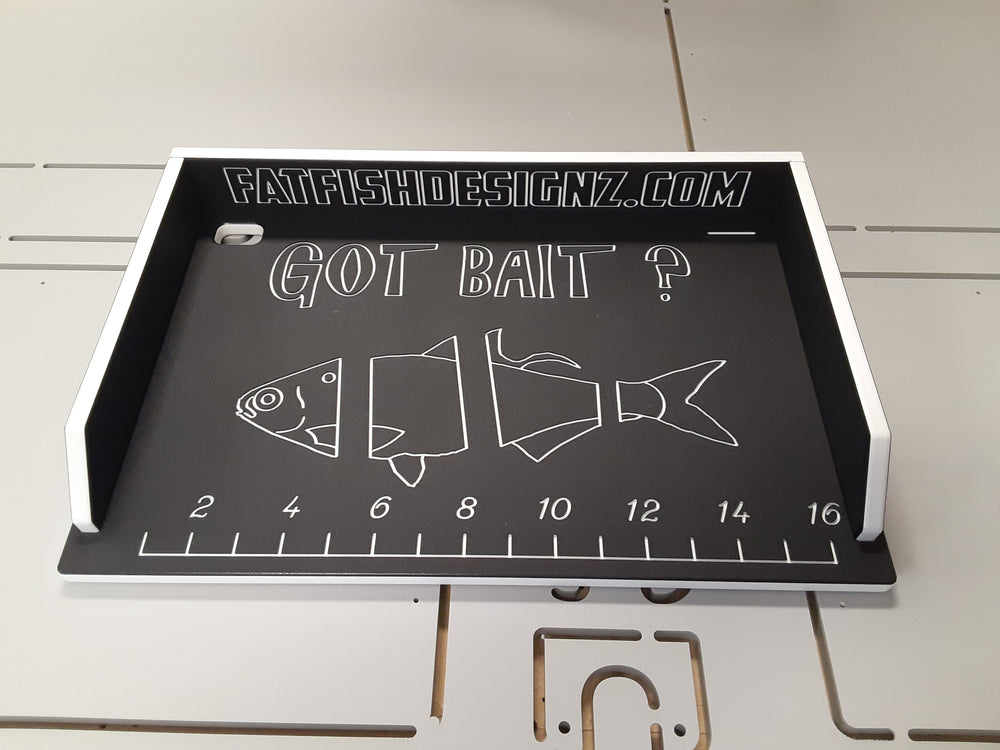 FATFISHDESIGNZ.COM
GOT BAIT ?
2 4 6 8 10 12 14 16